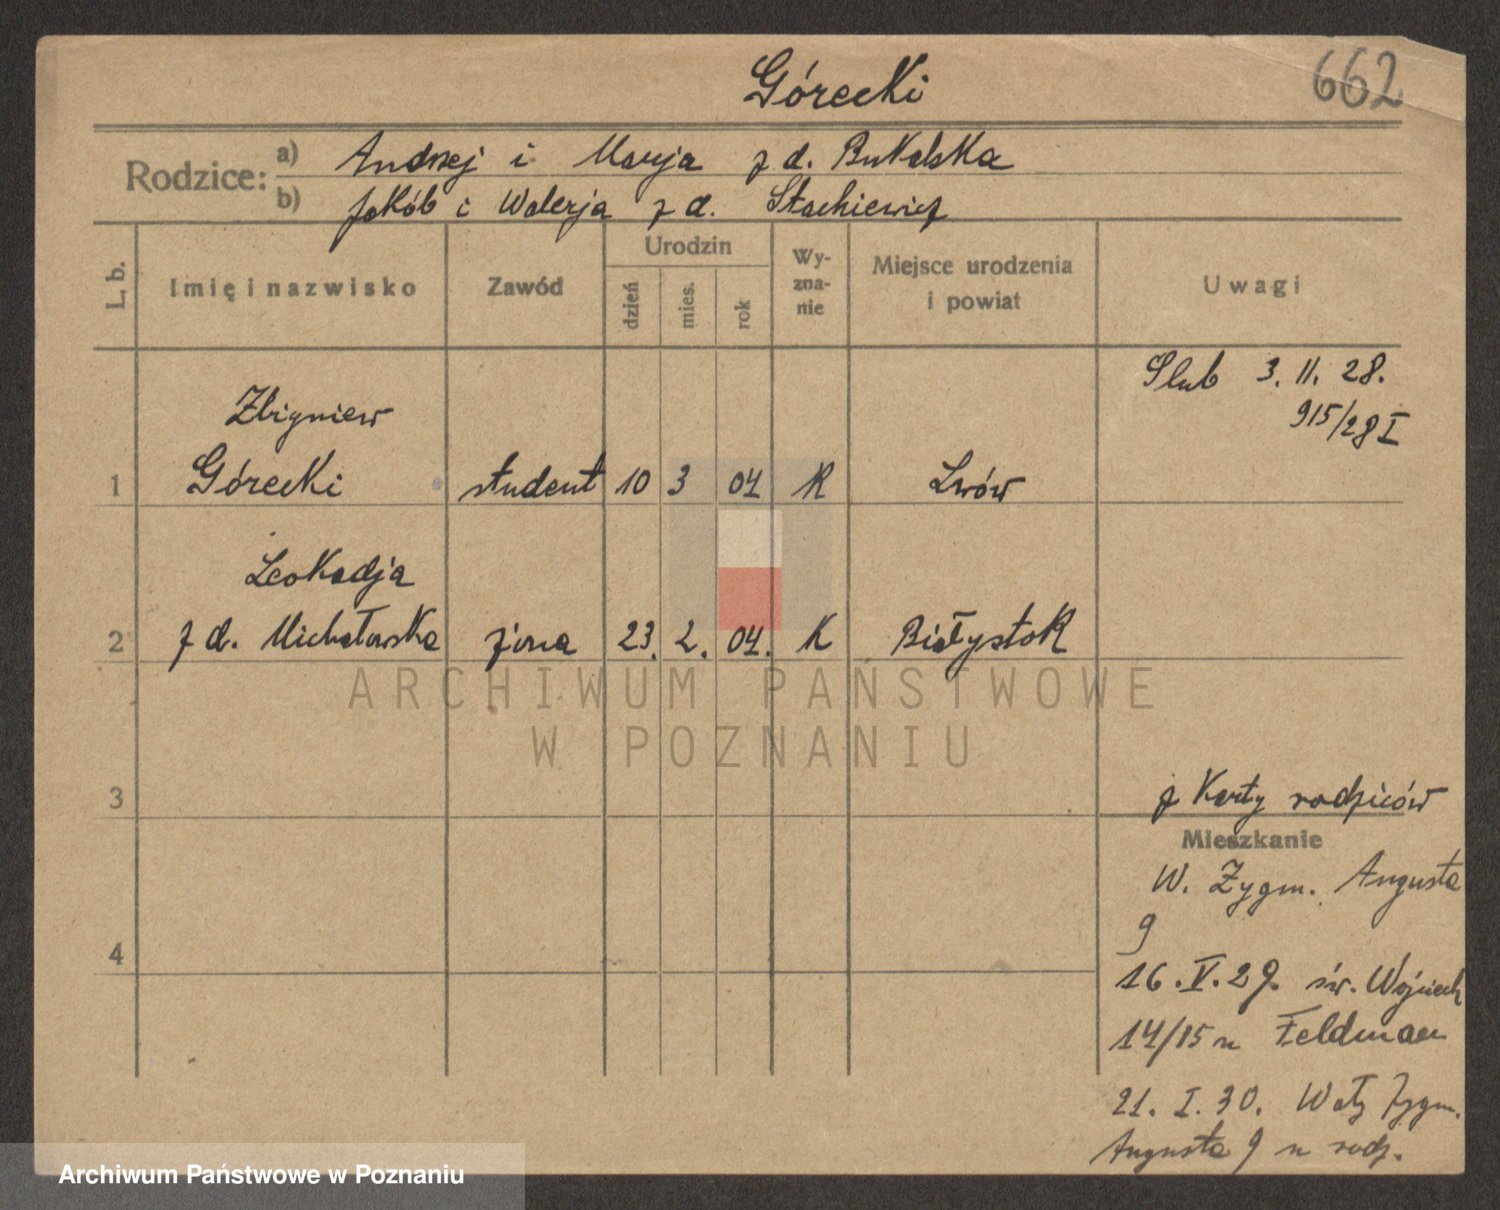 Górecki
662
Rodzice:
a) Andrzej i Marja z d. Bukalska
b) Jakób i Walerja z d. Stachiewicz
L. b.
Imię i nazwisko
Zawód
Urodzin
dzień
mies.
rok
Wy-
zna-
nie
Miejsce urodzenia
i powiat
Uwagi
Ślub 3. II. 28.
915/28 I
Zbigniew
1 Górecki student 10 3 04 K Lwów
Leokadja
2 z d. Michałowska żona 23. 2. 04. K Białystok
ARCHIWUM PAŃSTWOWE
W POZNANIU
3
z Karty rodziców
Mieszkanie
W. Zygm. Augusta
9
4
16. V. 29. św. Wojciech
14/15 u Feldman
21. I. 30. Wały Zygm.
Augusta 9 u rodz.
Archiwum Państwowe w Poznaniu